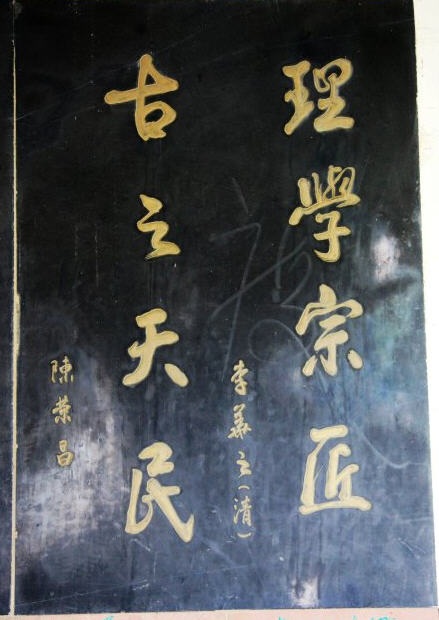 理學宗匠
李華之（清）
古之天民
陳榮昌